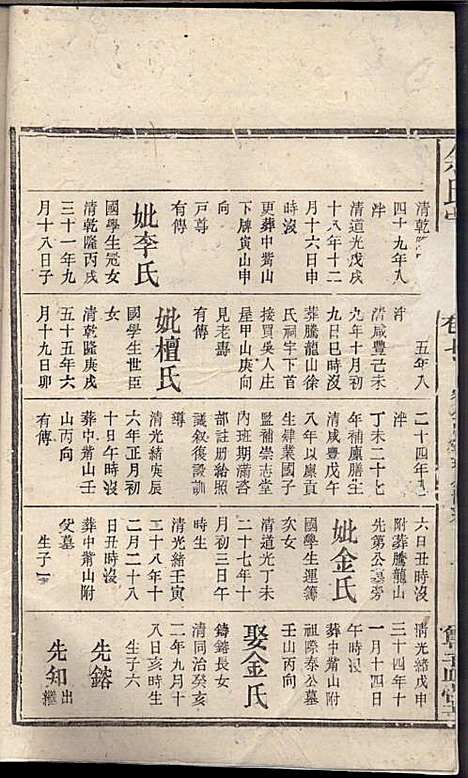 清乾隆
四十九年八
泮
清道光戊戌
十八年十二
月十六日申
時沒
更葬中嵜山
下牌寅山申
向
戸尊
有傳
妣李氏
國學生冠女
清乾隆丙戌
三十一年九
月十八日子
五年八
泮
清咸豐己未
九年十月初
九日巳時沒
葬騰龍山徐
氏祠宇下首
接買吳人庄
屋甲山庚向
見老譜
有傳
妣檀氏
國學生世臣
女
清乾隆庚戌
五十五年六
月十九日卯
二十四年
泮
丁未二十七
年補廩膳生
清咸豐戊午
八年以廩貢
生肄業國子
監補崇志堂
內班期滿咨
部註册給照
議叙復設訓
導
清光緒庚辰
六年正月初
十日午時沒
葬中嵜山壬
山丙向
有傳
六日丑時沒
附葬騰龍山
先第公墓旁
妣金氏
國學生運簿
次女
清道光丁未
二十七年十
月初三日午
時生
清光緒壬寅
二十八年十
二月二十八
日丑時沒
葬中嵜山附
父墓
生子一
清光緒戊申
三十四年十
一月十四日
午時沒
葬中嵜山附
祖際春公墓
壬山丙向
娶金氏
鑄鎔長女
清同治癸亥
二年九月十
八日亥時生
生子六
先鎔
先知
出繼